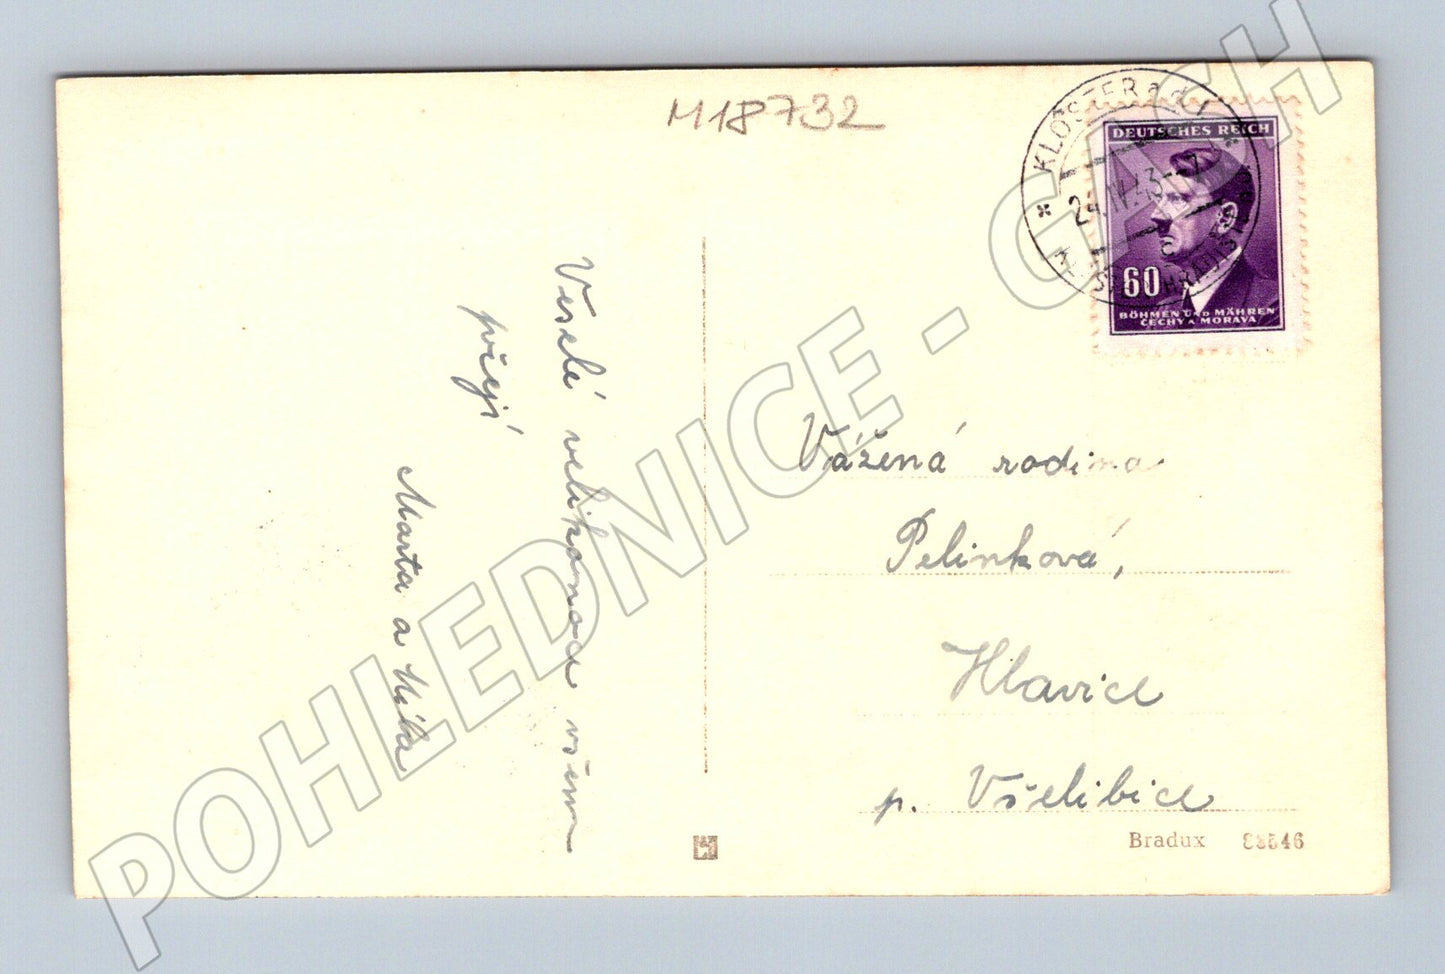 M18732
KLOSTER a d I
24.IV.43
HRADIŠTĚ
DEUTSCHES REICH
60
BÖHMEN UND MÄHREN
ČECHY A MORAVA
Veselé velikonoce všem
přejí
Marta a
Vážená rodina
Pelinková,
Hlavice
p. Všelibice
Bradux
POHLEDNICE - GACH